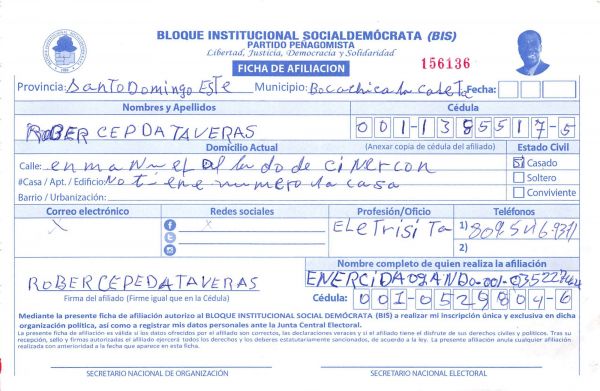 BLOQUE INSTITUCIONAL SOCIALDEMÓCRATA (BIS)
PARTIDO PEÑAGOMISTA
Libertad, Justicia, Democracia y Solidaridad
FICHA DE AFILIACION
156136
Provincia: Santo Domingo Este Municipio: Bocachica la Caleta Fecha:
Nombres y Apellidos Cédula
ROBER CEPDA TAVERAS 001-1385517-5
Domicilio Actual (Anexar copia de cédula del afiliado) Estado Civil
Calle: enmanuel al lado de Cinercon Casado
#Casa / Apt. / Edificio: No tiene numero la casa Soltero
Barrio / Urbanización: Conviviente
Correo electrónico Redes sociales Profesión/Oficio Teléfonos
X X ELeTrisiTa 1) 809.546-9371
2)
Nombre completo de quien realiza la afiliación
RoBER CEPEDA TAVERAS ENERCiDA
Firma del afiliado (Firme igual que en la Cédula) Cédula: 001-0529804-6
Mediante la presente ficha de afiliación autorizo al BLOQUE INSTITUCIONAL SOCIAL DEMÓCRATA (BIS) a realizar mi inscripción única y exclusiva en dicha
organización política, así como a registrar mis datos personales ante la Junta Central Electoral.
La presente ficha de afiliación es válida si los datos ofrecidos por el afiliado son correctos, las declaraciones veraces y si el afiliado tiene el disfrute de sus derechos civiles y políticos. Tras su
recepción, sello y firmas autorizadas el afiliado ejercerá todos los derechos y los deberes estatutariamente sancionados, de acuerdo a la ley. La presente afiliación anula cualquier afiliación
realizada con anterioridad a la fecha que aparece en esta ficha.
SECRETARIO NACIONAL DE ORGANIZACIÓN SECRETARIO NACIONAL ELECTORAL